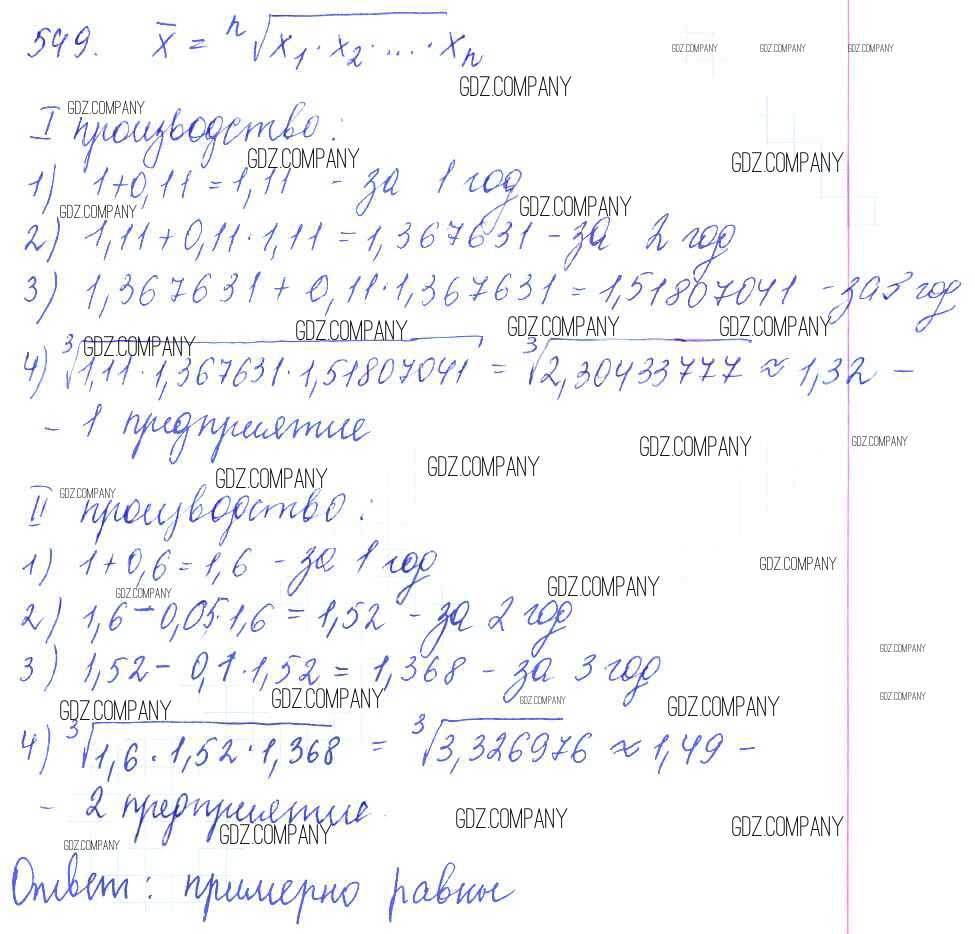 549. x̄ = ⁿ√(x₁ · x₂ · ... · xₙ)
GDZ.COMPANY GDZ.COMPANY GDZ.COMPANY
GDZ.COMPANY
GDZ.COMPANY
I производство:
GDZ.COMPANY GDZ.COMPANY
1) 1+0,11 = 1,11 - за 1 год
GDZ.COMPANY GDZ.COMPANY
2) 1,11 + 0,11 · 1,11 = 1,367631 - за 2 год
3) 1,367631 + 0,11 · 1,367631 = 1,51807041 - за 3 год
GDZ.COMPANY GDZ.COMPANY GDZ.COMPANY GDZ.COMPANY
4) ³√(1,11 · 1,367631 · 1,51807041) = ³√(2,30433777) ≈ 1,32 -
- 1 предприятие
GDZ.COMPANY GDZ.COMPANY
GDZ.COMPANY GDZ.COMPANY
GDZ.COMPANY
II производство:
1) 1+0,6 = 1,6 - за 1 год
GDZ.COMPANY
GDZ.COMPANY GDZ.COMPANY
2) 1,6 - 0,05 · 1,6 = 1,52 - за 2 год
GDZ.COMPANY
3) 1,52 - 0,1 · 1,52 = 1,368 - за 3 год
GDZ.COMPANY GDZ.COMPANY GDZ.COMPANY GDZ.COMPANY GDZ.COMPANY
4) ³√(1,6 · 1,52 · 1,368) = ³√(3,326976) ≈ 1,49 -
- 2 предприятие
GDZ.COMPANY GDZ.COMPANY GDZ.COMPANY
GDZ.COMPANY
Ответ: примерно равны